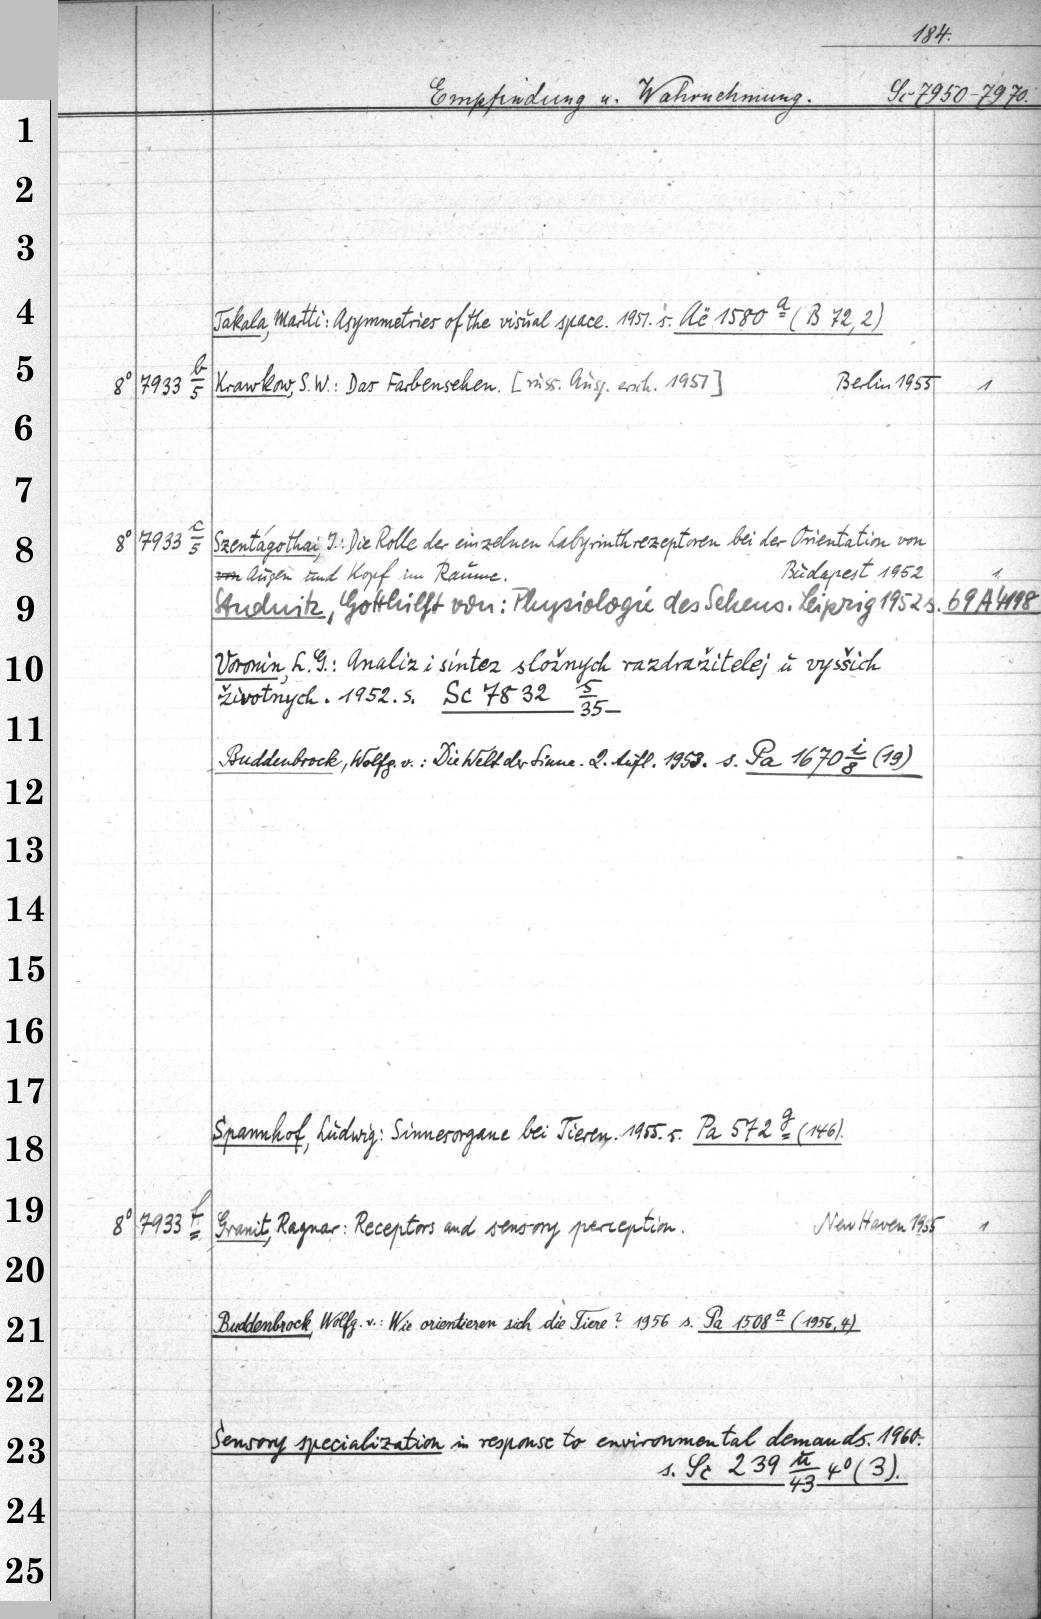 184.
Empfindung u. Wahrnehmung. Sc 7950-7970.
1
2
3
4 Takala, Martti: Asymmetries of the visual space. 1951. s. Ac 1580 a (B 72, 2)
5 8° 7933 b/5 Krawkow, S.W.: Das Farbensehen. [russ. Ausg. ersch. 1951] Berlin 1955 1
6
7
8 8° 7933 c/5 Szentágothai, J.: Die Rolle der einzelnen Labyrinthrezeptoren bei der Orientation von
von Augen und Kopf im Raume. Budapest 1952 1
9 Studnitz, Gotthilft von: Physiologie des Sehens. Leipzig 1952 s. 69 A 4198
10 Voronin, L.G.: Analiz i sintez složnych razdražitelej u vysšich
životnych. 1952. s. Sc 7832 5/35
11
Buddenbrock, Wolfg. v.: Die Welt der Sinne. 2. Aufl. 1953. s. Pa 1670 i/8 (19)
12
13
14
15
16
17
18 Spannhof, Ludwig: Sinnesorgane bei Tieren. 1955. s. Pa 572 g (146).
19 8° 7933 f Granit, Ragnar: Receptors and sensory perception. New Haven 1955 1
20
21 Buddenbrock, Wolfg. v.: Wie orientieren sich die Tiere? 1956 s. Pa 1508 a (1956, 4)
22
23 Sensory specialization in response to environmental demands. 1960.
s. Sc 239 u/43 4° (3).
24
25